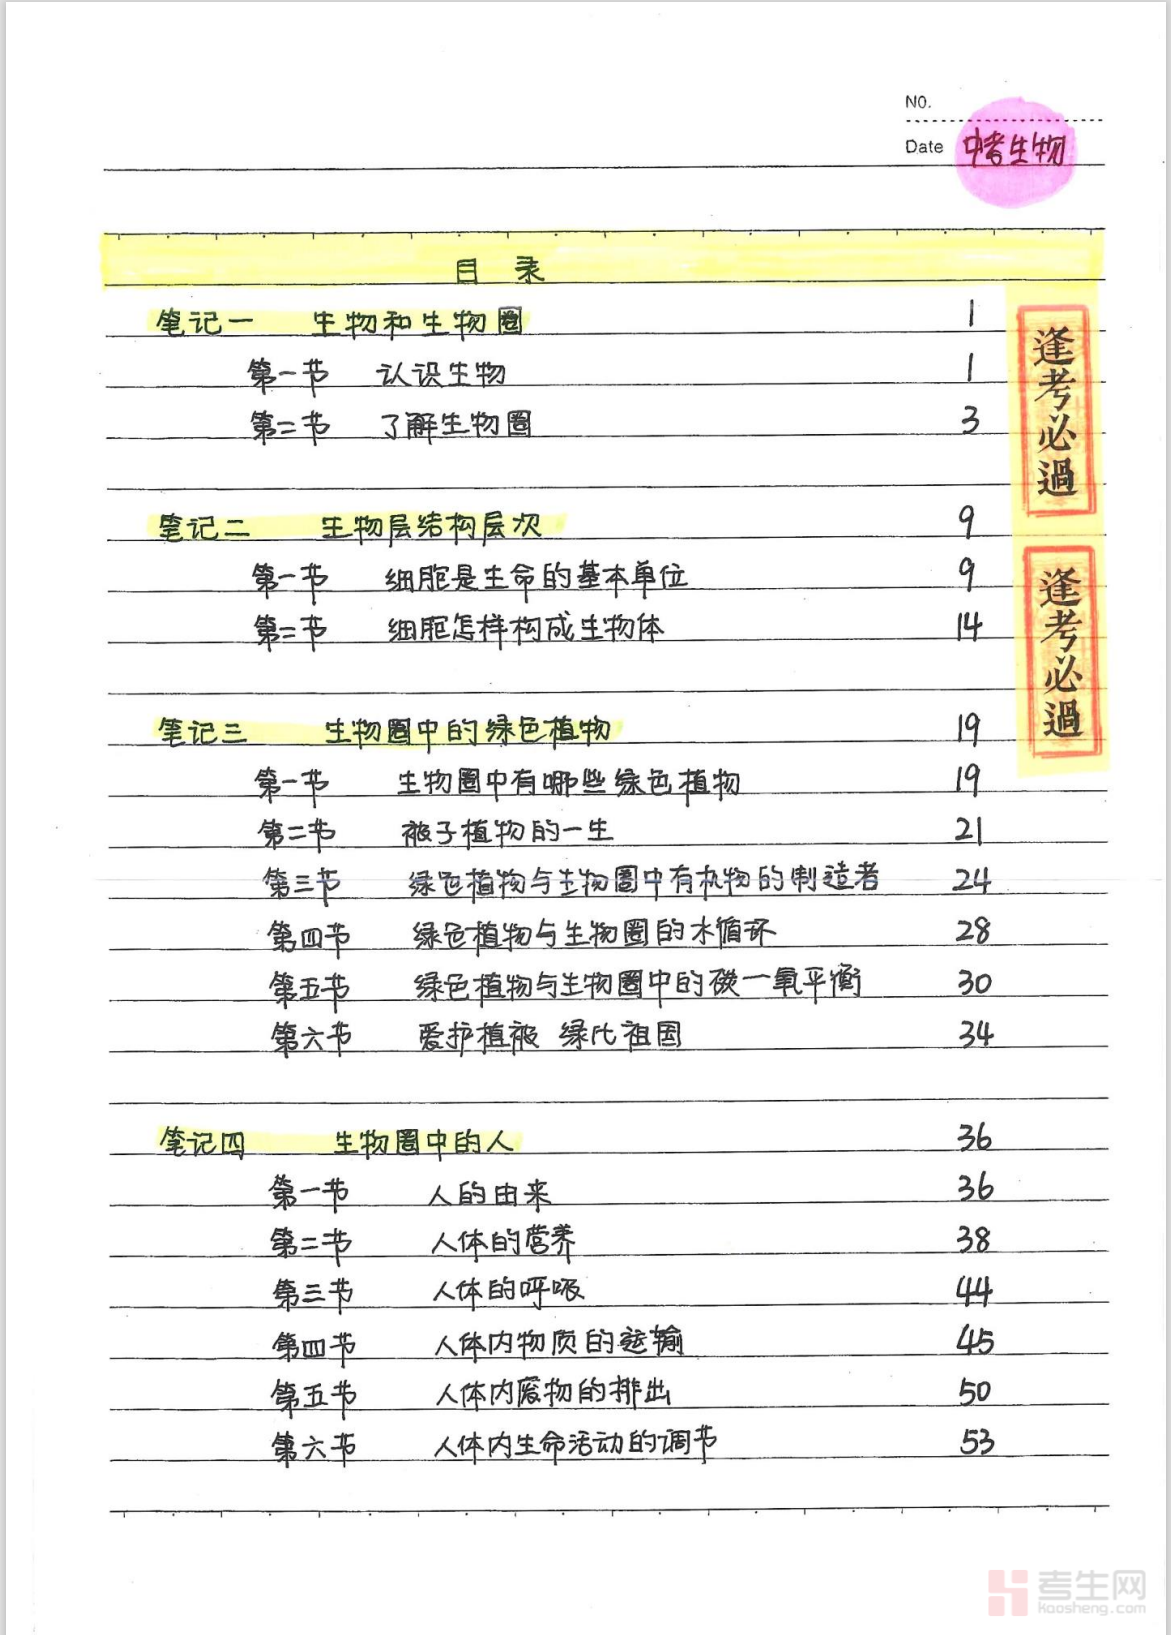 NO.
Date 中考生物
目录
笔记一 生物和生物圈 1
第一节 认识生物 1
第二节 了解生物圈 3
笔记二 生物层结构层次 9
第一节 细胞是生命的基本单位 9
第二节 细胞怎样构成生物体 14
笔记三 生物圈中的绿色植物 19
第一节 生物圈中有哪些绿色植物 19
第二节 被子植物的一生 21
第三节 绿色植物与生物圈中有机物的制造者 24
第四节 绿色植物与生物圈的水循环 28
第五节 绿色植物与生物圈中的碳一氧平衡 30
第六节 爱护植被 绿化祖国 34
笔记四 生物圈中的人 36
第一节 人的由来 36
第二节 人体的营养 38
第三节 人体的呼吸 44
第四节 人体内物质的运输 45
第五节 人体内废物的排出 50
第六节 人体内生命活动的调节 53
逢考必過
逢考必過
考生网
kaosheng.com